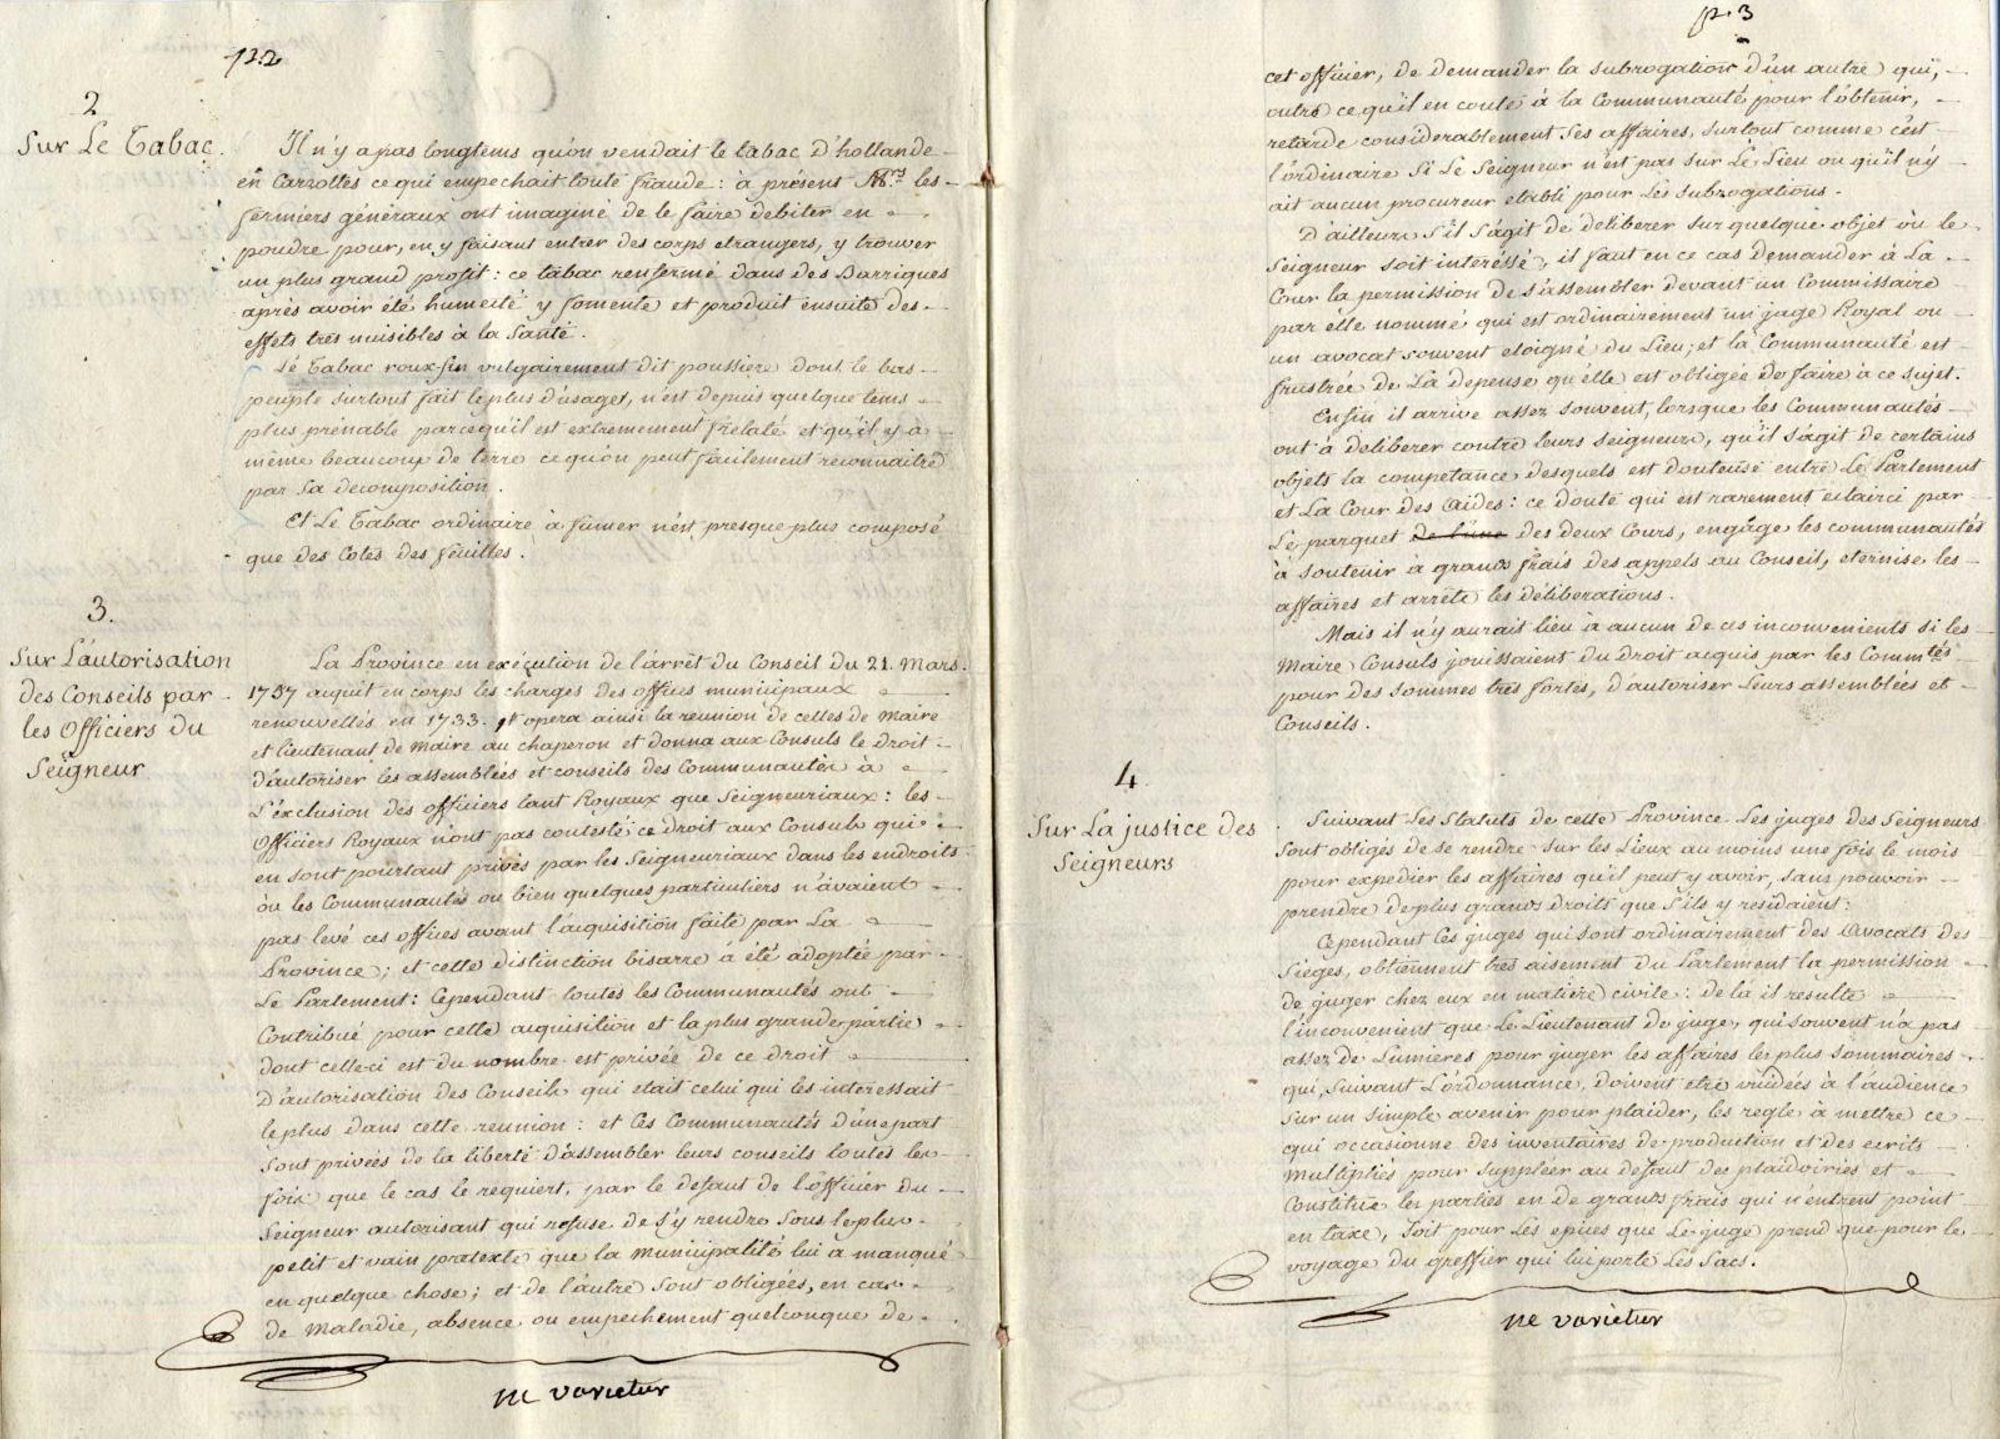 p. 2
2
Sur Le Tabac.
Il n'y a pas longtems qu'on vendait le tabac D'hollande
en Carrottes ce qui empechait toute fraude : à présent Mrs les
fermiers généraux ont imaginé de le faire debiter en
poudre pour, en y faisant entrer des corps etrangers, y trouver
un plus grand profit : ce tabac renfermé dans des Barriques
après avoir été humecté y fomente et produit ensuite des
effets très nuisibles à la Santé.
Le Tabac roux fin vulgairement dit poussiere dont le bas
peuple surtout fait le plus d'usage, n'est depuis quelque tems
plus prenable parcequ'il est extremement frelaté et qu'il y a
même beaucoup de terre ce qu'on peut facilement reconnaitre
par sa decomposition.
Et Le Tabac ordinaire à fumer n'est presque plus composé
que des Cotes des feuilles.
3.
Sur L'autorisation
des Conseils par
les Officiers du
Seigneur
La Province en exécution de l'arrêt du Conseil du 21. Mars
1757 acquit en corps les charges des offices municipaux
renouvellés en 1733. et opera ainsi la reunion de celles de Maire
et lieutenant de Maire au chaperon et donna aux Consuls le droit
d'autoriser les assemblées et conseils des Communautés à
L'éxclusion des officiers tant Royaux que Seigneuriaux : les
Officiers Royaux n'ont pas contesté ce droit aux Consuls qui
en sont pourtant privés par les Seigneuriaux dans les endroits
où les Communautés ou bien quelques particuliers n'avaient
pas levé ces offices avant l'acquisition faite par La
Province ; et cette distinction bisarre a été adoptée par
Le Parlement : Cependant toutes les Communautés ont
Contribué pour cette acquisition et la plus grande partie
dont celle-ci est du nombre est privée de ce droit
D'autorisation des Conseils qui etait celui qui les interessait
le plus dans cette reunion : et les Communautés d'une part
sont privées de la liberté d'assembler leurs conseils toutes les
fois que le cas le requiert, par le defaut de l'officier du
Seigneur autorisant qui refuse de s'y rendre sous le plus
petit et vain pretexte que la municipalité lui a manqué
en quelque chose ; et de l'autre sont obligées, en cas
de Maladie, absence ou empechement quelconque de
ne varietur
p. 3
cet officier, de demander la subrogation d'un autre qui,
outre ce qu'il en coute à la Communauté pour l'obtenir,
retarde considerablement ses affaires, surtout comme c'est
l'ordinaire si Le Seigneur n'est pas sur Le Lieu ou qu'il n'y
ait aucun procureur etabli pour Les Subrogations.
D'ailleurs s'il s'agit de deliberer sur quelque objet où le
Seigneur soit interéssé, il faut en ce cas demander à La
Cour la permission de s'assembler devant un Commissaire
par elle nommé qui est ordinairement un juge Royal ou
un avocat souvent eloigné du Lieu ; et la Communauté est
frustrée de La depense qu'elle est obligée de faire à ce sujet.
Enfin il arrive assez souvent, lorsque les Communautés
ont à deliberer contre leurs seigneurs, qu'il s'agit de certains
objets la competance desquels est douteuse entre Le Parlement
et La Cour des Aides : ce doute qui est rarement eclairci par
Le parquet de l'une des deux Cours, engage les communautés
à soutenir à grands frais des appels au Conseil, eternise les
affaires et arrête les déliberations.
Mais il n'y aurait lieu à aucun de ces inconvenients si les
Maire Consuls jouissaient du droit acquis par les Commtés
pour des sommes très fortes, d'autoriser leurs assemblées et
Conseils.
4
Sur La justice des
Seigneurs
Suivant Les Statuts de cette Province Les juges des Seigneurs
sont obligés de se rendre sur les Lieux au moins une fois le mois
pour expedier les affaires qu'il peut y avoir, sans pouvoir
prendre de plus grands droits que s'ils y residaient :
Cependant Ces juges qui sont ordinairement des Avocats des
Sieges, obtiennent très aisement du Parlement la permission
de juger chez eux en matiere civile : de là il resulte
l'inconvenient que Le Lieutenant de juge, qui souvent n'a pas
assez de Lumieres pour juger les affaires les plus sommaires
qui, suivant L'ordonnance, doivent etre vuidées à l'audience
sur un simple avenir pour plaider, les regle à mettre ce
qui occasionne des inventaires de production et des ecrits
Multipliés pour suppléer au defaut des plaidoiries et
Constitue les parties en de grands frais qui n'entrent point
en taxe, soit pour Les epices que Le juge prend que pour le
voyage du greffier qui lui porte Les Sacs.
ne varietur